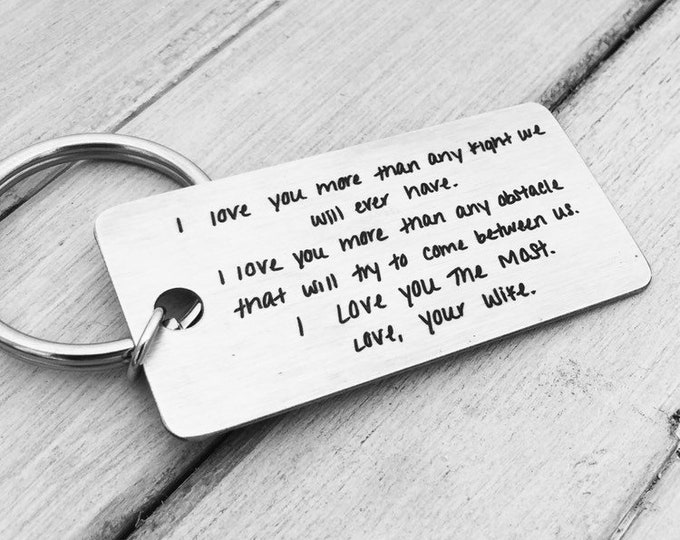 I love you more than any fight we
will ever have.
I love you more than any obstacle
that will try to come between us.
I Love you The Most.
Love, Your Wife.